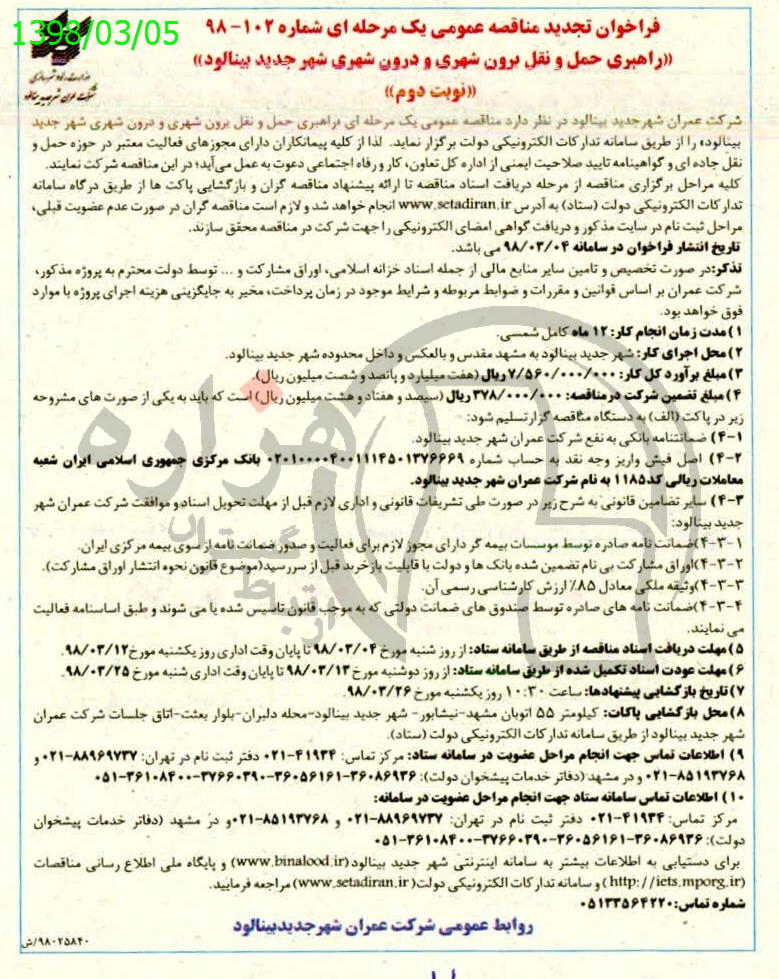 1398/03/05
فراخوان تجدید مناقصه عمومی یک مرحله ای شماره ۱۰۲-۹۸
«راهبری حمل و نقل برون شهری و درون شهری شهر جدید بینالود»
«نوبت دوم»
وزارت راه و شهرسازی
شرکت عمران شهر جدید بینالود
شرکت عمران شهرجدید بینالود در نظر دارد مناقصه عمومی یک مرحله ای «راهبری حمل و نقل برون شهری و درون شهری شهر جدید
بینالود» را از طریق سامانه تدارکات الکترونیکی دولت برگزار نماید. لذا از کلیه پیمانکاران دارای مجوزهای فعالیت معتبر در حوزه حمل و
نقل جاده ای و گواهینامه تایید صلاحیت ایمنی از اداره کل تعاون، کار و رفاه اجتماعی دعوت به عمل می‌آید؛ در این مناقصه شرکت نمایند.
کلیه مراحل برگزاری مناقصه از مرحله دریافت اسناد مناقصه تا ارائه پیشنهاد مناقصه گران و بازگشایی پاکت ها از طریق درگاه سامانه
تدارکات الکترونیکی دولت (ستاد) به آدرس www.setadiran.ir انجام خواهد شد و لازم است مناقصه گران در صورت عدم عضویت قبلی،
مراحل ثبت نام در سایت مذکور و دریافت گواهی امضای الکترونیکی را جهت شرکت در مناقصه محقق سازند.
تاریخ انتشار فراخوان در سامانه ۹۸/۰۳/۰۴ می باشد.
تذکر:در صورت تخصیص و تامین سایر منابع مالی از جمله اسناد خزانه اسلامی، اوراق مشارکت و ... توسط دولت محترم به پروژه مذکور،
شرکت عمران بر اساس قوانین و مقررات و ضوابط مربوطه و شرایط موجود در زمان پرداخت، مخیر به جایگزینی هزینه اجرای پروژه با موارد
فوق خواهد بود.
۱) مدت زمان انجام کار: ۱۲ ماه کامل شمسی.
۲) محل اجرای کار: شهر جدید بینالود به مشهد مقدس و بالعکس و داخل محدوده شهر جدید بینالود.
۳) مبلغ برآورد کل کار: ۷/۵۶۰/۰۰۰/۰۰۰ ریال (هفت میلیارد و پانصد و شصت میلیون ریال).
۴) مبلغ تضمین شرکت درمناقصه: ۳۷۸/۰۰۰/۰۰۰ ریال (سیصد و هفتاد و هشت میلیون ریال) است که باید به یکی از صورت های مشروحه
زیر در پاکت (الف) به دستگاه مناقصه گزار تسلیم شود:
۴-۱) ضمانتنامه بانکی به نفع شرکت عمران شهر جدید بینالود.
۴-۲) اصل فیش واریز وجه نقد به حساب شماره ۰۲۰۱۰۰۰۰۴۰۰۱۱۱۴۵۰۱۳۷۶۶۶۹ بانک مرکزی جمهوری اسلامی ایران شعبه
معاملات ریالی کد۱۱۸۵ به نام شرکت عمران شهر جدید بینالود.
۴-۳) سایر تضامین قانونی به شرح زیر در صورت طی تشریفات قانونی و اداری لازم قبل از مهلت تحویل اسناد و موافقت شرکت عمران شهر
جدید بینالود:
۴-۳-۱)ضمانت نامه صادره توسط موسسات بیمه گر دارای مجوز لازم برای فعالیت و صدور ضمانت نامه از سوی بیمه مرکزی ایران.
۴-۳-۲)اوراق مشارکت بی نام تضمین شده بانک ها و دولت با قابلیت بازخرید قبل از سررسید(موضوع قانون نحوه انتشار اوراق مشارکت).
۴-۳-۳)وثیقه ملکی معادل ۸۵٪ ارزش کارشناسی رسمی آن.
۴-۳-۴)ضمانت نامه های صادره توسط صندوق های ضمانت دولتی که به موجب قانون تاسیس شده یا می شوند و طبق اساسنامه فعالیت
می نمایند.
۵) مهلت دریافت اسناد مناقصه از طریق سامانه ستاد: از روز شنبه مورخ ۹۸/۰۳/۰۴ تا پایان وقت اداری روز یکشنبه مورخ۹۸/۰۳/۱۲.
۶) مهلت عودت اسناد تکمیل شده از طریق سامانه ستاد: از روز دوشنبه مورخ ۹۸/۰۳/۱۳ تا پایان وقت اداری شنبه مورخ ۹۸/۰۳/۲۵.
۷) تاریخ بازگشایی پیشنهادها: ساعت ۱۰:۳۰ روز یکشنبه مورخ ۹۸/۰۳/۲۶.
۸) محل بازگشایی پاکات: کیلومتر ۵۵ اتوبان مشهد-نیشابور- شهر جدید بینالود-محله دلبران-بلوار بعثت-اتاق جلسات شرکت عمران
شهر جدید بینالود از طریق سامانه تدارکات الکترونیکی دولت (ستاد).
۹) اطلاعات تماس جهت انجام مراحل عضویت در سامانه ستاد: مرکز تماس: ۴۱۹۳۴-۰۲۱ دفتر ثبت نام در تهران: ۸۸۹۶۹۷۳۷-۰۲۱ و
۸۵۱۹۳۷۶۸-۰۲۱ و در مشهد (دفاتر خدمات پیشخوان دولت): ۳۶۰۸۶۹۳۶-۳۶۰۵۶۱۶۱-۳۷۶۶۰۳۹۰-۳۶۱۰۸۴۰۰-۰۵۱
۱۰) اطلاعات تماس سامانه ستاد جهت انجام مراحل عضویت در سامانه:
مرکز تماس: ۴۱۹۳۴-۰۲۱ دفتر ثبت نام در تهران: ۸۸۹۶۹۷۳۷-۰۲۱ و ۸۵۱۹۳۷۶۸-۰۲۱و در مشهد (دفاتر خدمات پیشخوان
دولت): ۳۶۰۸۶۹۳۶-۳۶۰۵۶۱۶۱-۳۷۶۶۰۳۹۰-۳۶۱۰۸۴۰۰-۰۵۱
برای دستیابی به اطلاعات بیشتر به سامانه اینترنتی شهر جدید بینالود (www.binalood.ir) و پایگاه ملی اطلاع رسانی مناقصات
(http://iets.mporg.ir) و سامانه تدارکات الکترونیکی دولت (www.setadiran.ir) مراجعه فرمایید.
شماره تماس: ۰۵۱۳۳۵۶۴۲۲۰
روابط عمومی شرکت عمران شهرجدیدبینالود
۹۸۰۲۵۸۴۰/ش
هزاره